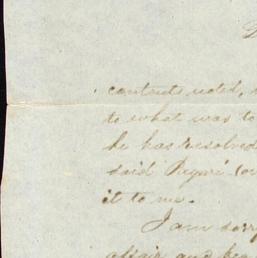 contents noted,
to what was to
he has resolved
said
it to me.
I am sorry
affair and beg